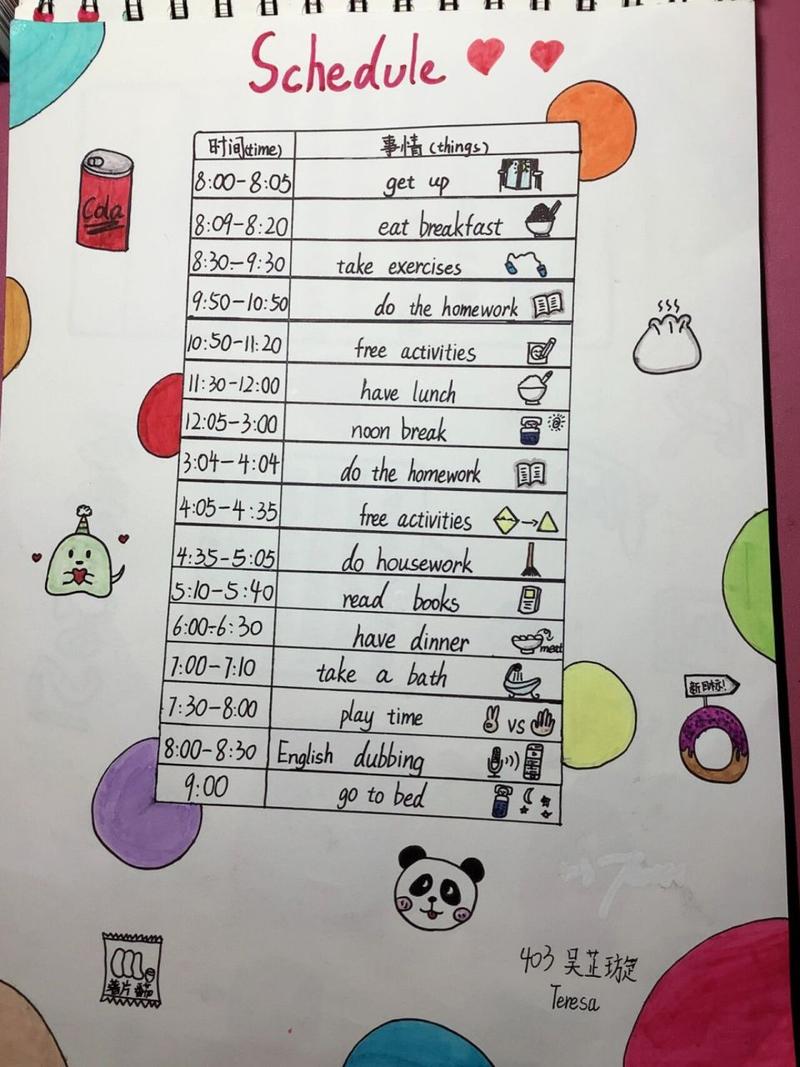 Schedule
时间(time) 事情(things)
8:00-8:05 get up
8:09-8:20 eat breakfast
8:30-9:30 take exercises
9:50-10:50 do the homework
10:50-11:20 free activities
11:30-12:00 have lunch
12:05-3:00 noon break
3:04-4:04 do the homework
4:05-4:35 free activities
4:35-5:05 do housework
5:10-5:40 read books
6:00-6:30 have dinner
meat
7:00-7:10 take a bath
7:30-8:00 play time
VS
8:00-8:30 English dubbing
9:00 go to bed
Cola
新目标!
薯片
403 吴芷
Teresa